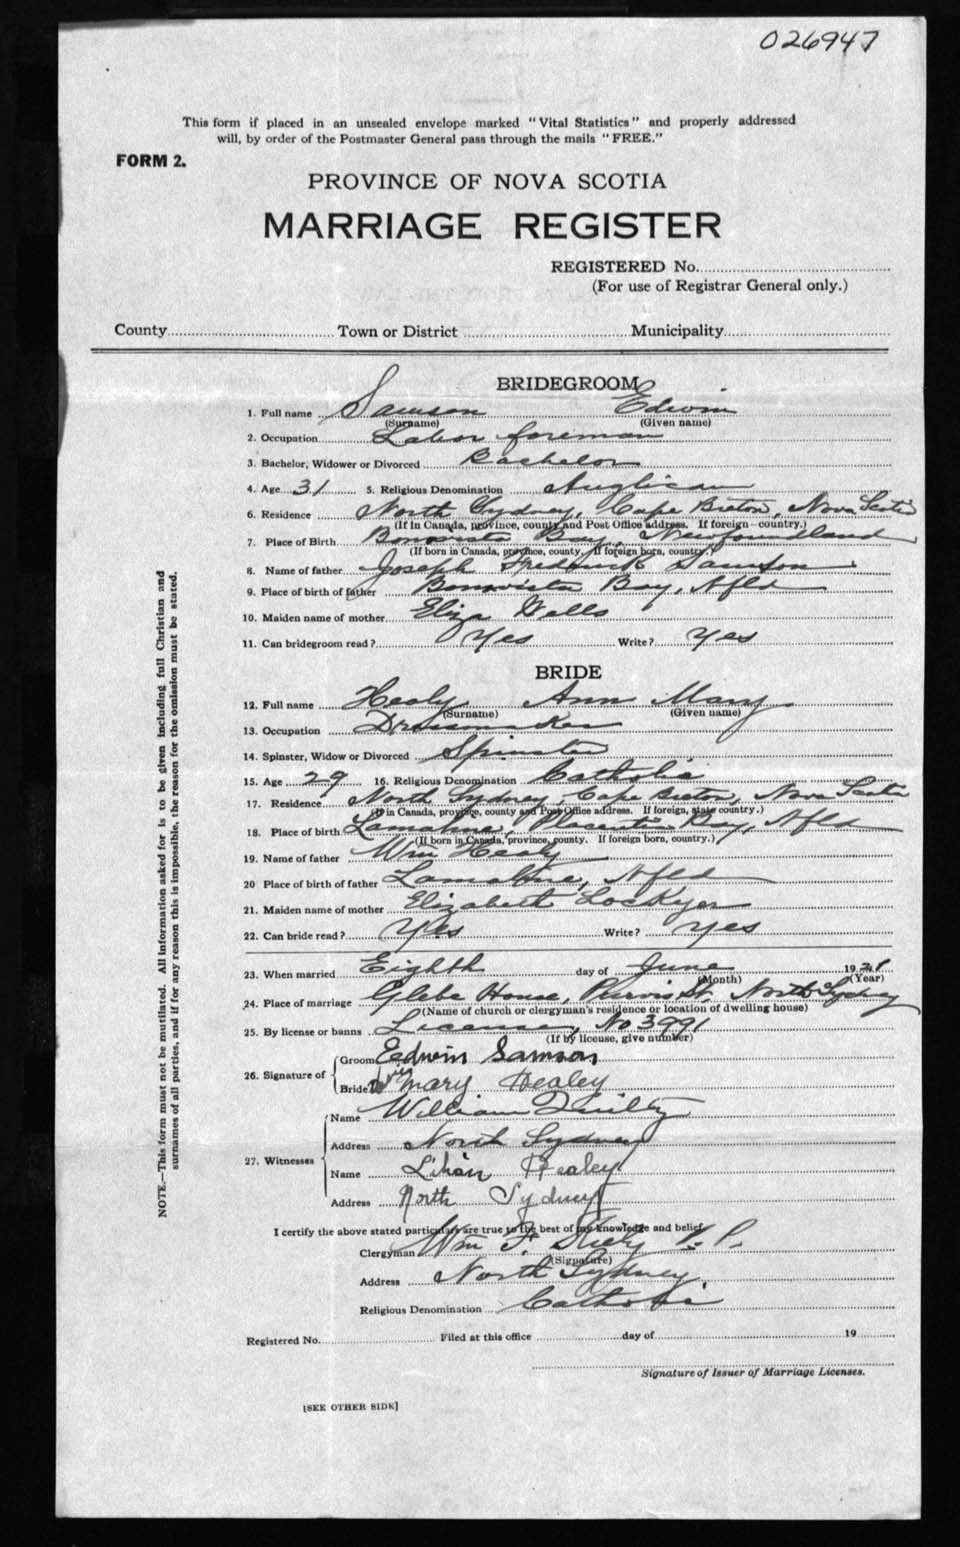 026947
This form if placed in an unsealed envelope marked "Vital Statistics" and properly addressed
will, by order of the Postmaster General pass through the mails "FREE."
FORM 2.
PROVINCE OF NOVA SCOTIA
MARRIAGE REGISTER
REGISTERED No.
(For use of Registrar General only.)
County Town or District Municipality
BRIDEGROOM
1. Full name Samson Edwin
(Surname) (Given name)
2. Occupation Labor foreman
3. Bachelor, Widower or Divorced Bachelor
4. Age 31 5. Religious Denomination Anglican
6. Residence North Sydney, Cape Breton, Nova Scotia
(If in Canada, province, county and Post Office address. If foreign—country.)
7. Place of Birth Bonavista Bay, Newfoundland
(If born in Canada, province, county. If foreign born, country.)
8. Name of father Joseph Fredrick Samson
9. Place of birth of father Bonavista Bay, Nfld
10. Maiden name of mother Eliza
11. Can bridegroom read? Yes Write? Yes
BRIDE
12. Full name Healy Ann Mary
(Surname) (Given name)
13. Occupation Dressmaker
14. Spinster, Widow or Divorced Spinster
15. Age 29 16. Religious Denomination Catholic
17. Residence North Sydney, Cape Breton, Nova Scotia
(If in Canada, province, county and Post Office address. If foreign, state country.)
18. Place of birth Lamaline, Bay, Nfld
(If born in Canada, province, county. If foreign born, country.)
19. Name of father Wm Healy
20 Place of birth of father Lamaline, Nfld
21. Maiden name of mother Elizabeth Lockyer
22. Can bride read? Yes Write? Yes
23. When married Eighth day of June 1921
(Month) (Year)
24. Place of marriage Glebe House, St, North Sydney
(Name of church or clergyman's residence or location of dwelling house)
25. By license or banns License, No 3991
(If by license, give number)
26. Signature of
Groom Edwin Samson
Bride Mary Healey
27. Witnesses
Name William Quilty
Address North Sydney
Name Lilian Healey
Address North Sydney
I certify the above stated particulars are true to the best of my knowledge and belief.
Clergyman Wm F. P.P.
(Signature)
Address North Sydney
Religious Denomination Catholic
Registered No. Filed at this office day of 19
Signature of Issuer of Marriage Licenses.
[SEE OTHER SIDE]
NOTE.—This form must not be mutilated. All information asked for is to be given including full Christian and
surnames of all parties, and if for any reason this is impossible, the reason for the omission must be stated.